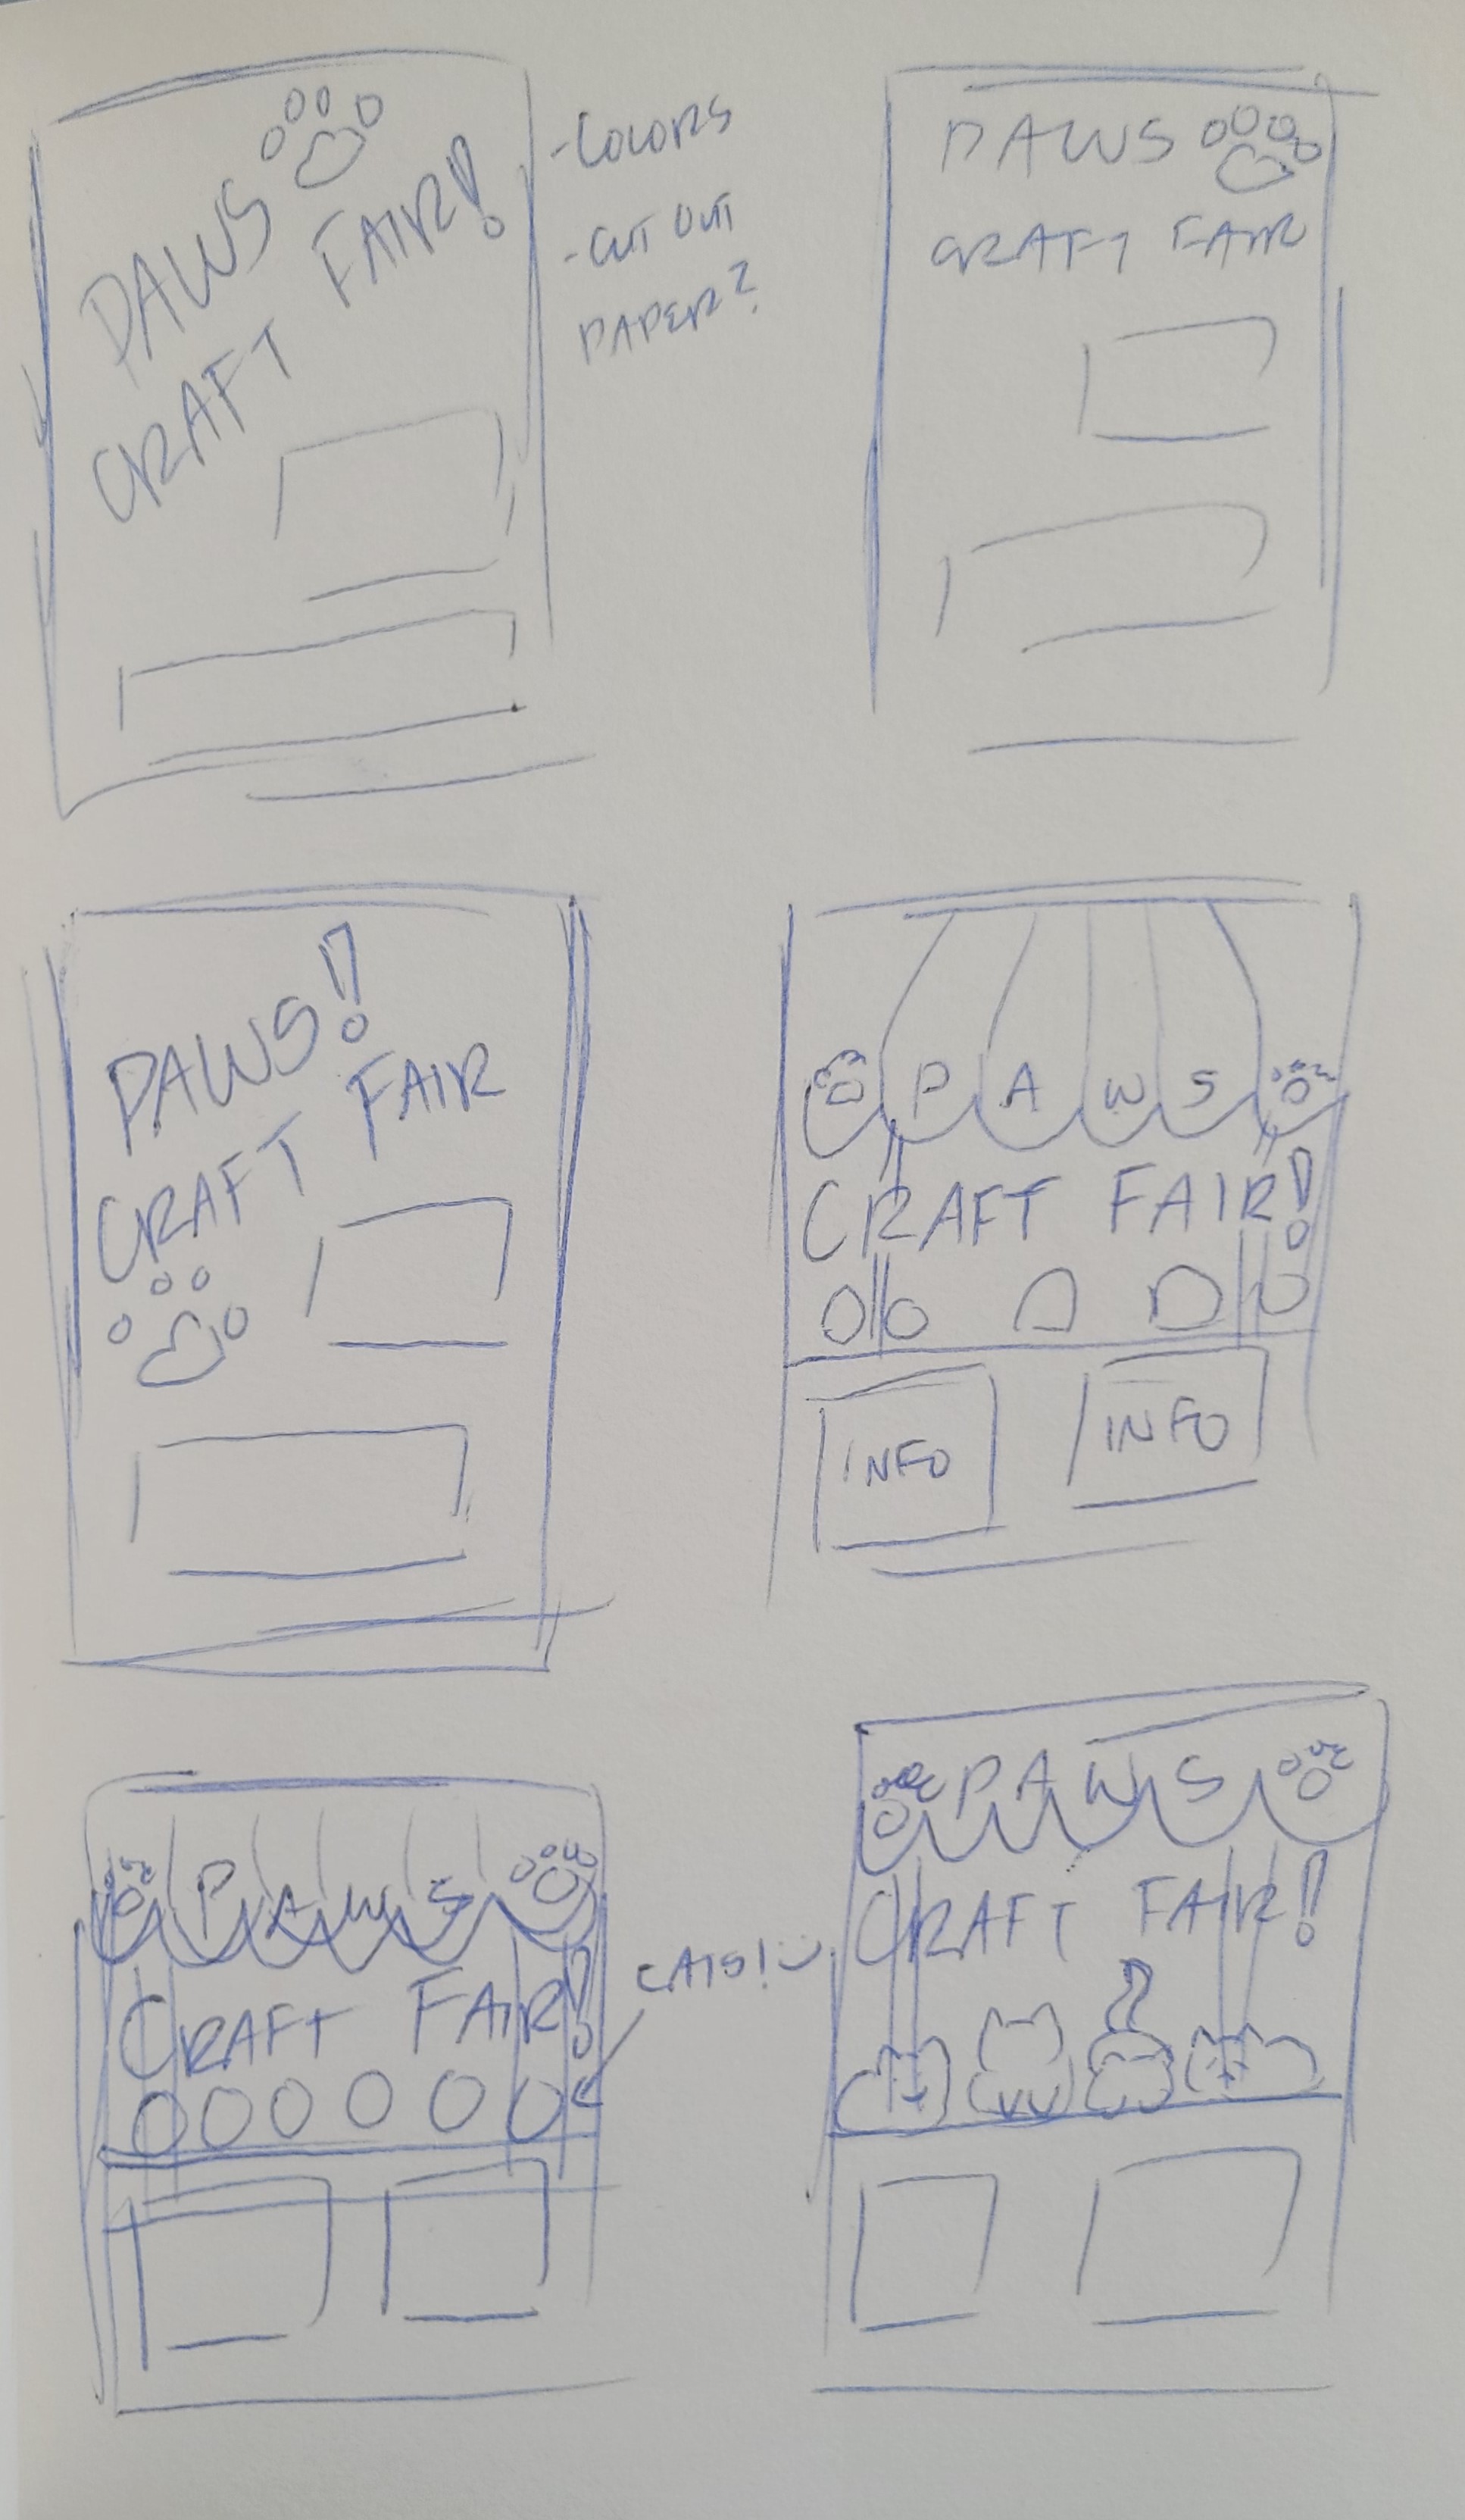 PAWS
CRAFT FAIR!
-COLORS
-CUT OUT
PAPER?
PAWS
CRAFT FAIR
PAWS!
CRAFT FAIR
PAWS
CRAFT FAIR!
INFO
INFO
PAWS
CRAFT FAIR!
CATS! :)
PAWS
CRAFT FAIR!